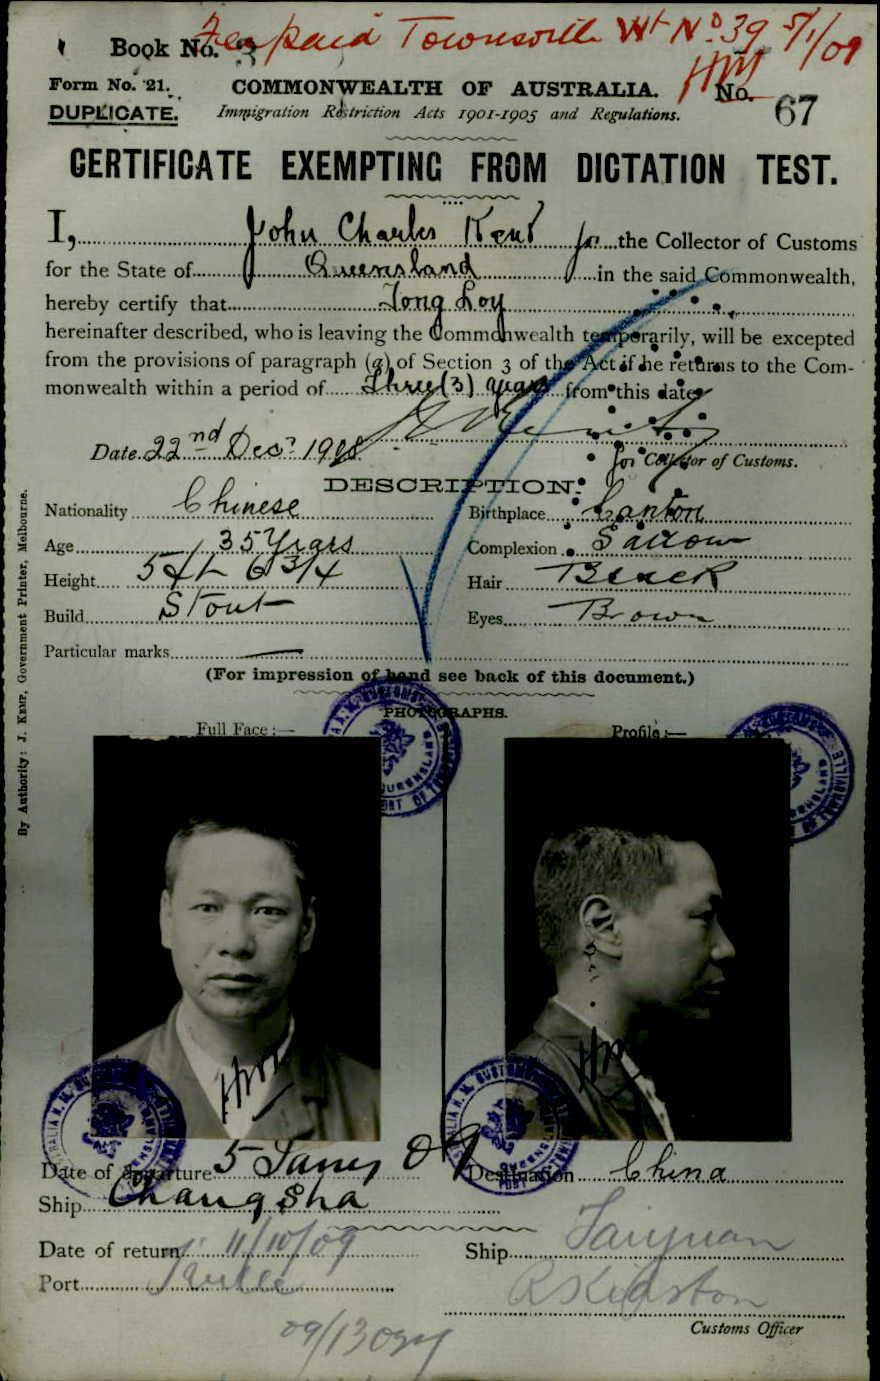 Fee paid Townsville Wt No 39 5/1/09
HM
Book No. 3
Form No. 21.
COMMONWEALTH OF AUSTRALIA.
No. 67
DUPLICATE.
Immigration Restriction Acts 1901-1905 and Regulations.
CERTIFICATE EXEMPTING FROM DICTATION TEST.
I, John Charles Kent for the Collector of Customs
for the State of Queensland in the said Commonwealth,
hereby certify that Tong Loy
hereinafter described, who is leaving the Commonwealth temporarily, will be excepted
from the provisions of paragraph (a) of Section 3 of the Act if he returns to the Com-
monwealth within a period of Three (3) years from this date
Date 22nd Decr 1908
for Collector of Customs.
DESCRIPTION.
Nationality Chinese
Birthplace Canton
Age 35 Years
Complexion Sallow
Height 5 ft 6 3/4
Hair Black
Build Stout
Eyes Brown
Particular marks
(For impression of hand see back of this document.)
PHOTOGRAPHS.
Full Face :—
Profile :—
HM
HM
Date of departure 5 Jany 09
Destination China
Ship Changsha
Date of return 11/10/09
Ship Taiyuan
Port
Customs Officer
By Authority: J. KEMP, Government Printer, Melbourne.